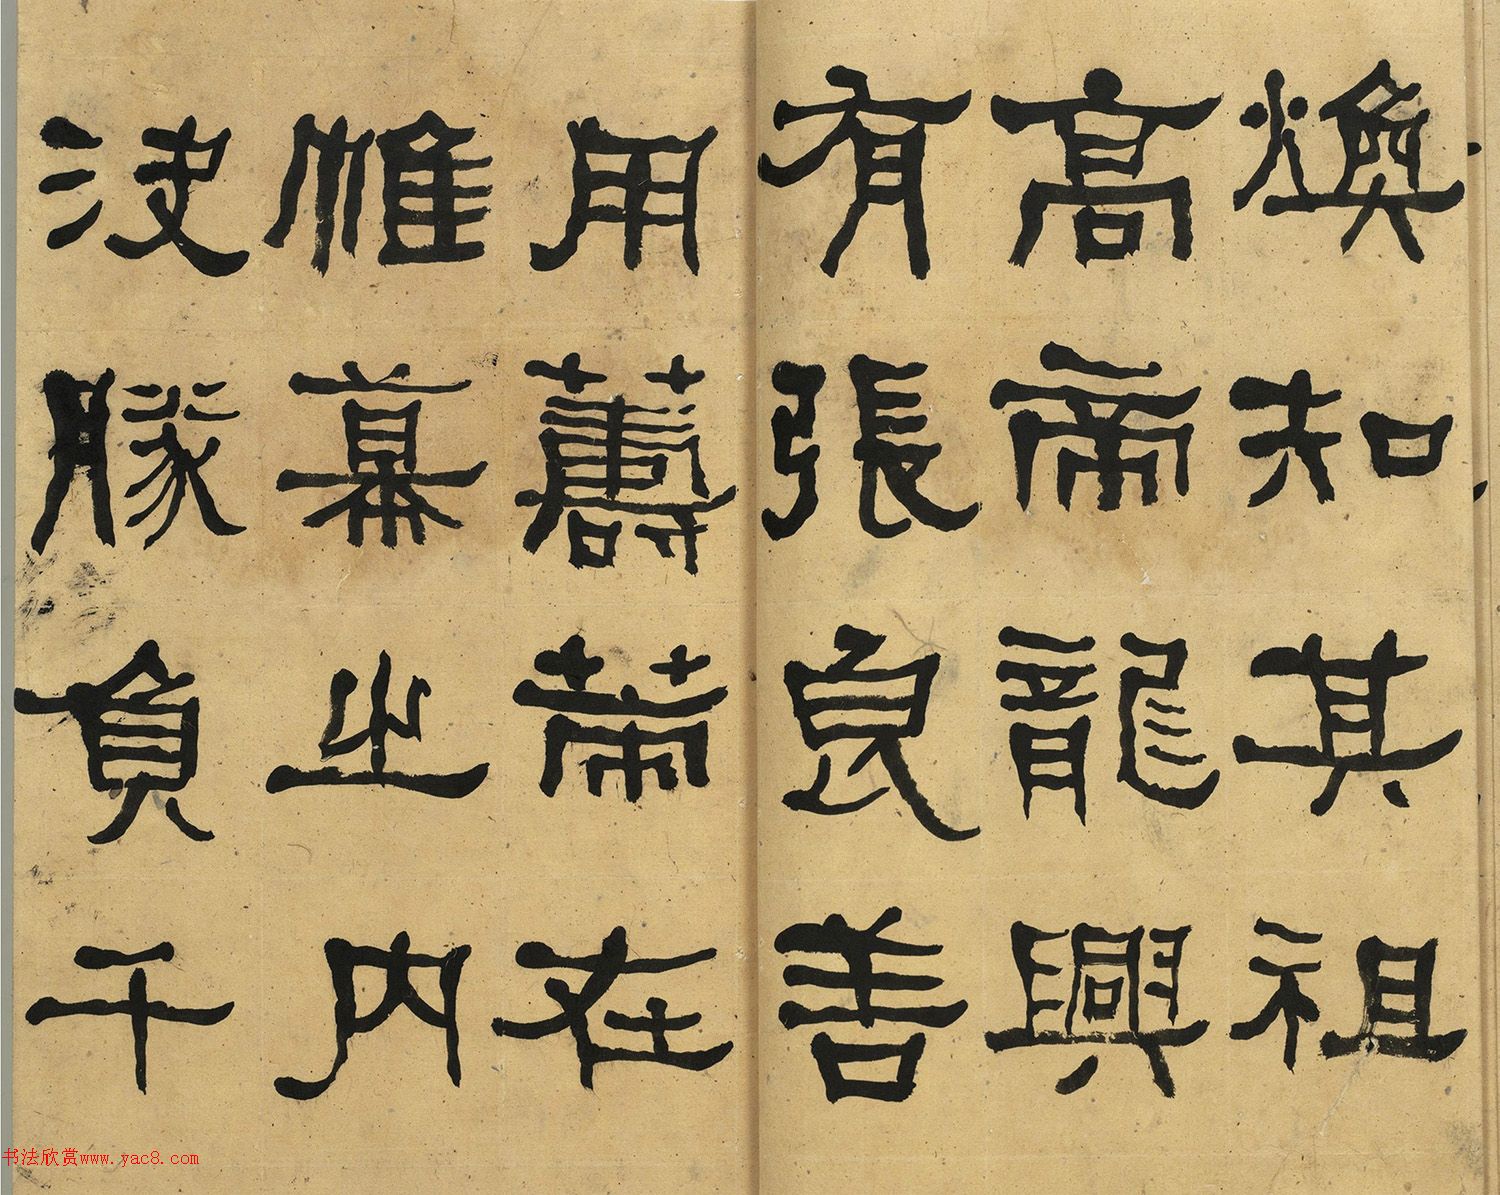 煥知其祖
高帝龍興
有張良善
用籌策在
帷幕之內
決勝負千
书法欣赏www.yac8.com